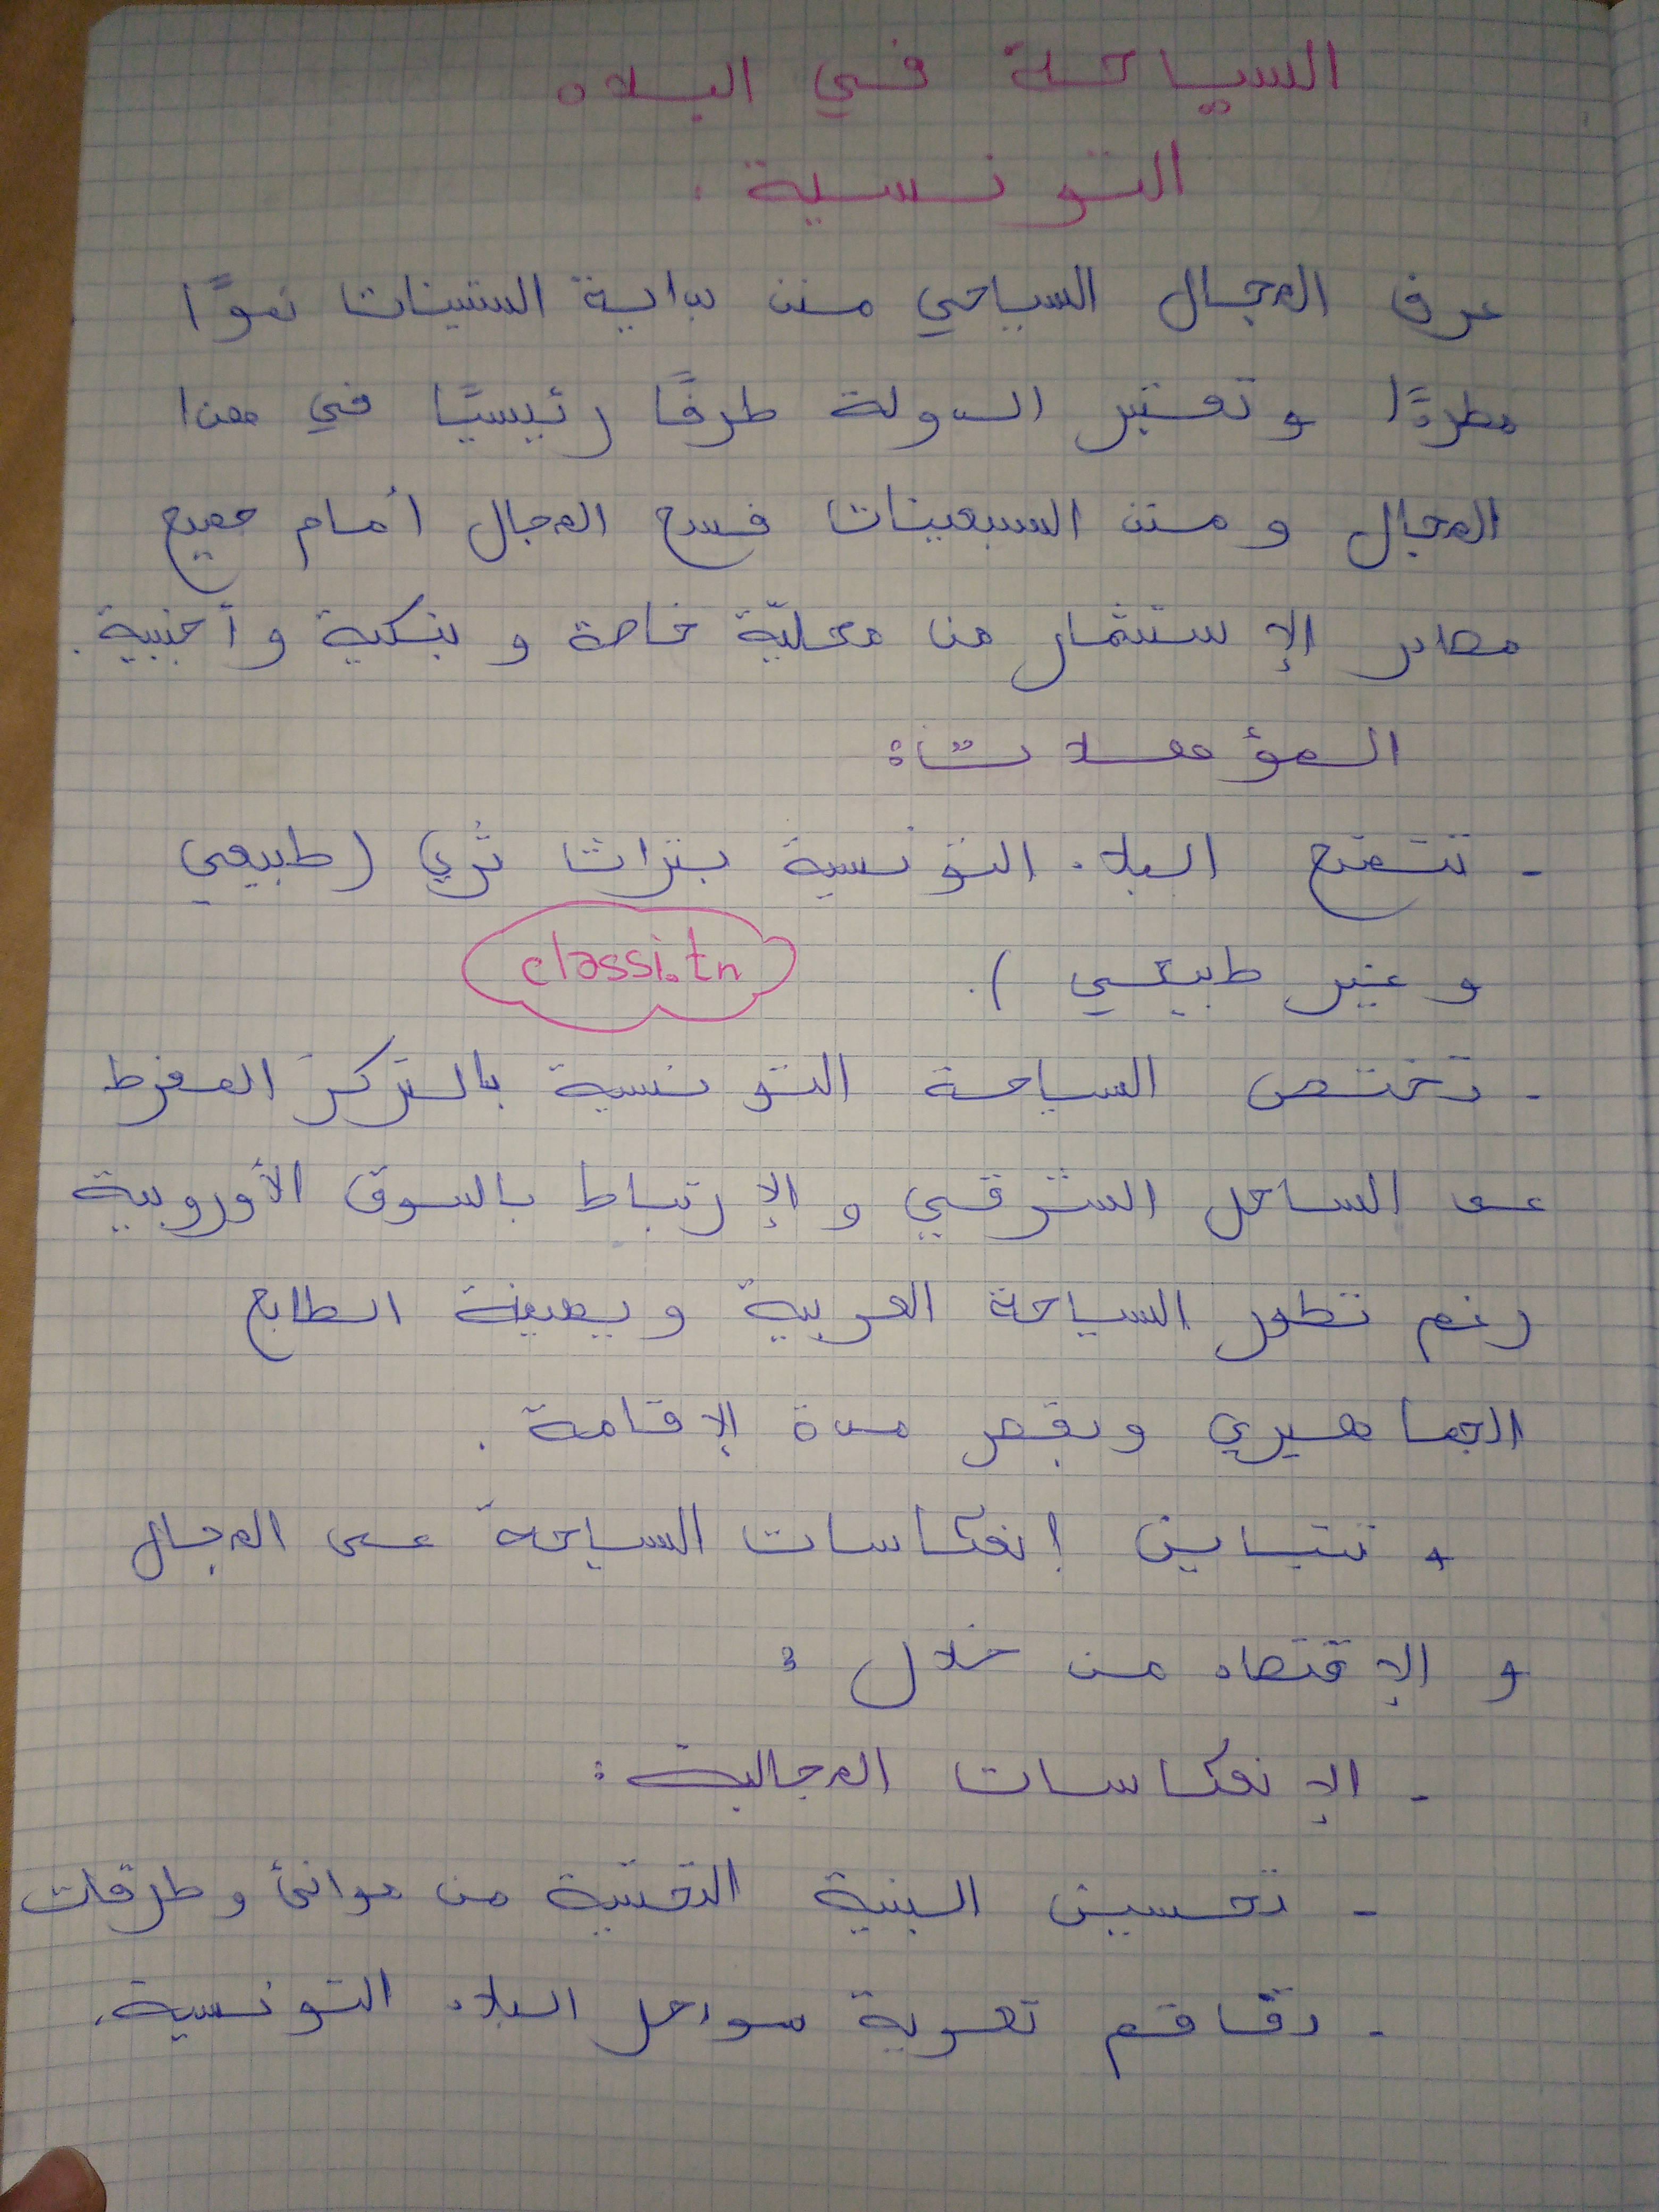 السياحة في البلاد
التونسية .
عرف المجال السياحي منذ بداية الستينات نموًا
مطردًا و تعتبر الدولة طرفًا رئيسيًا في هذا
المجال و منذ السبعينات فسح المجال أمام جميع
مصادر الإستثمار من محليّة خاصة و بنكية و أجنبية .
المؤهلات :
- تتمتع البلاد التونسية بتراث ثري ( طبيعي
و غير طبيعي ) .
classi.tn
- تختص السياحة التونسية بالتركز المفرط
على الساحل الشرقي و الإرتباط بالسوق الأوروبية
رغم تطور السياحة العربية و بصبغة الطابع
الجماهيري وبقصر مدة الإقامة .
+ تتباين إنعكاسات السياحة على المجال
و الإقتصاد من خلال :
- الإنعكاسات المجالية :
- تحسين البنية التحتية من موانئ و طرقات
- تفاقم تعرية سواحل البلاد التونسية .